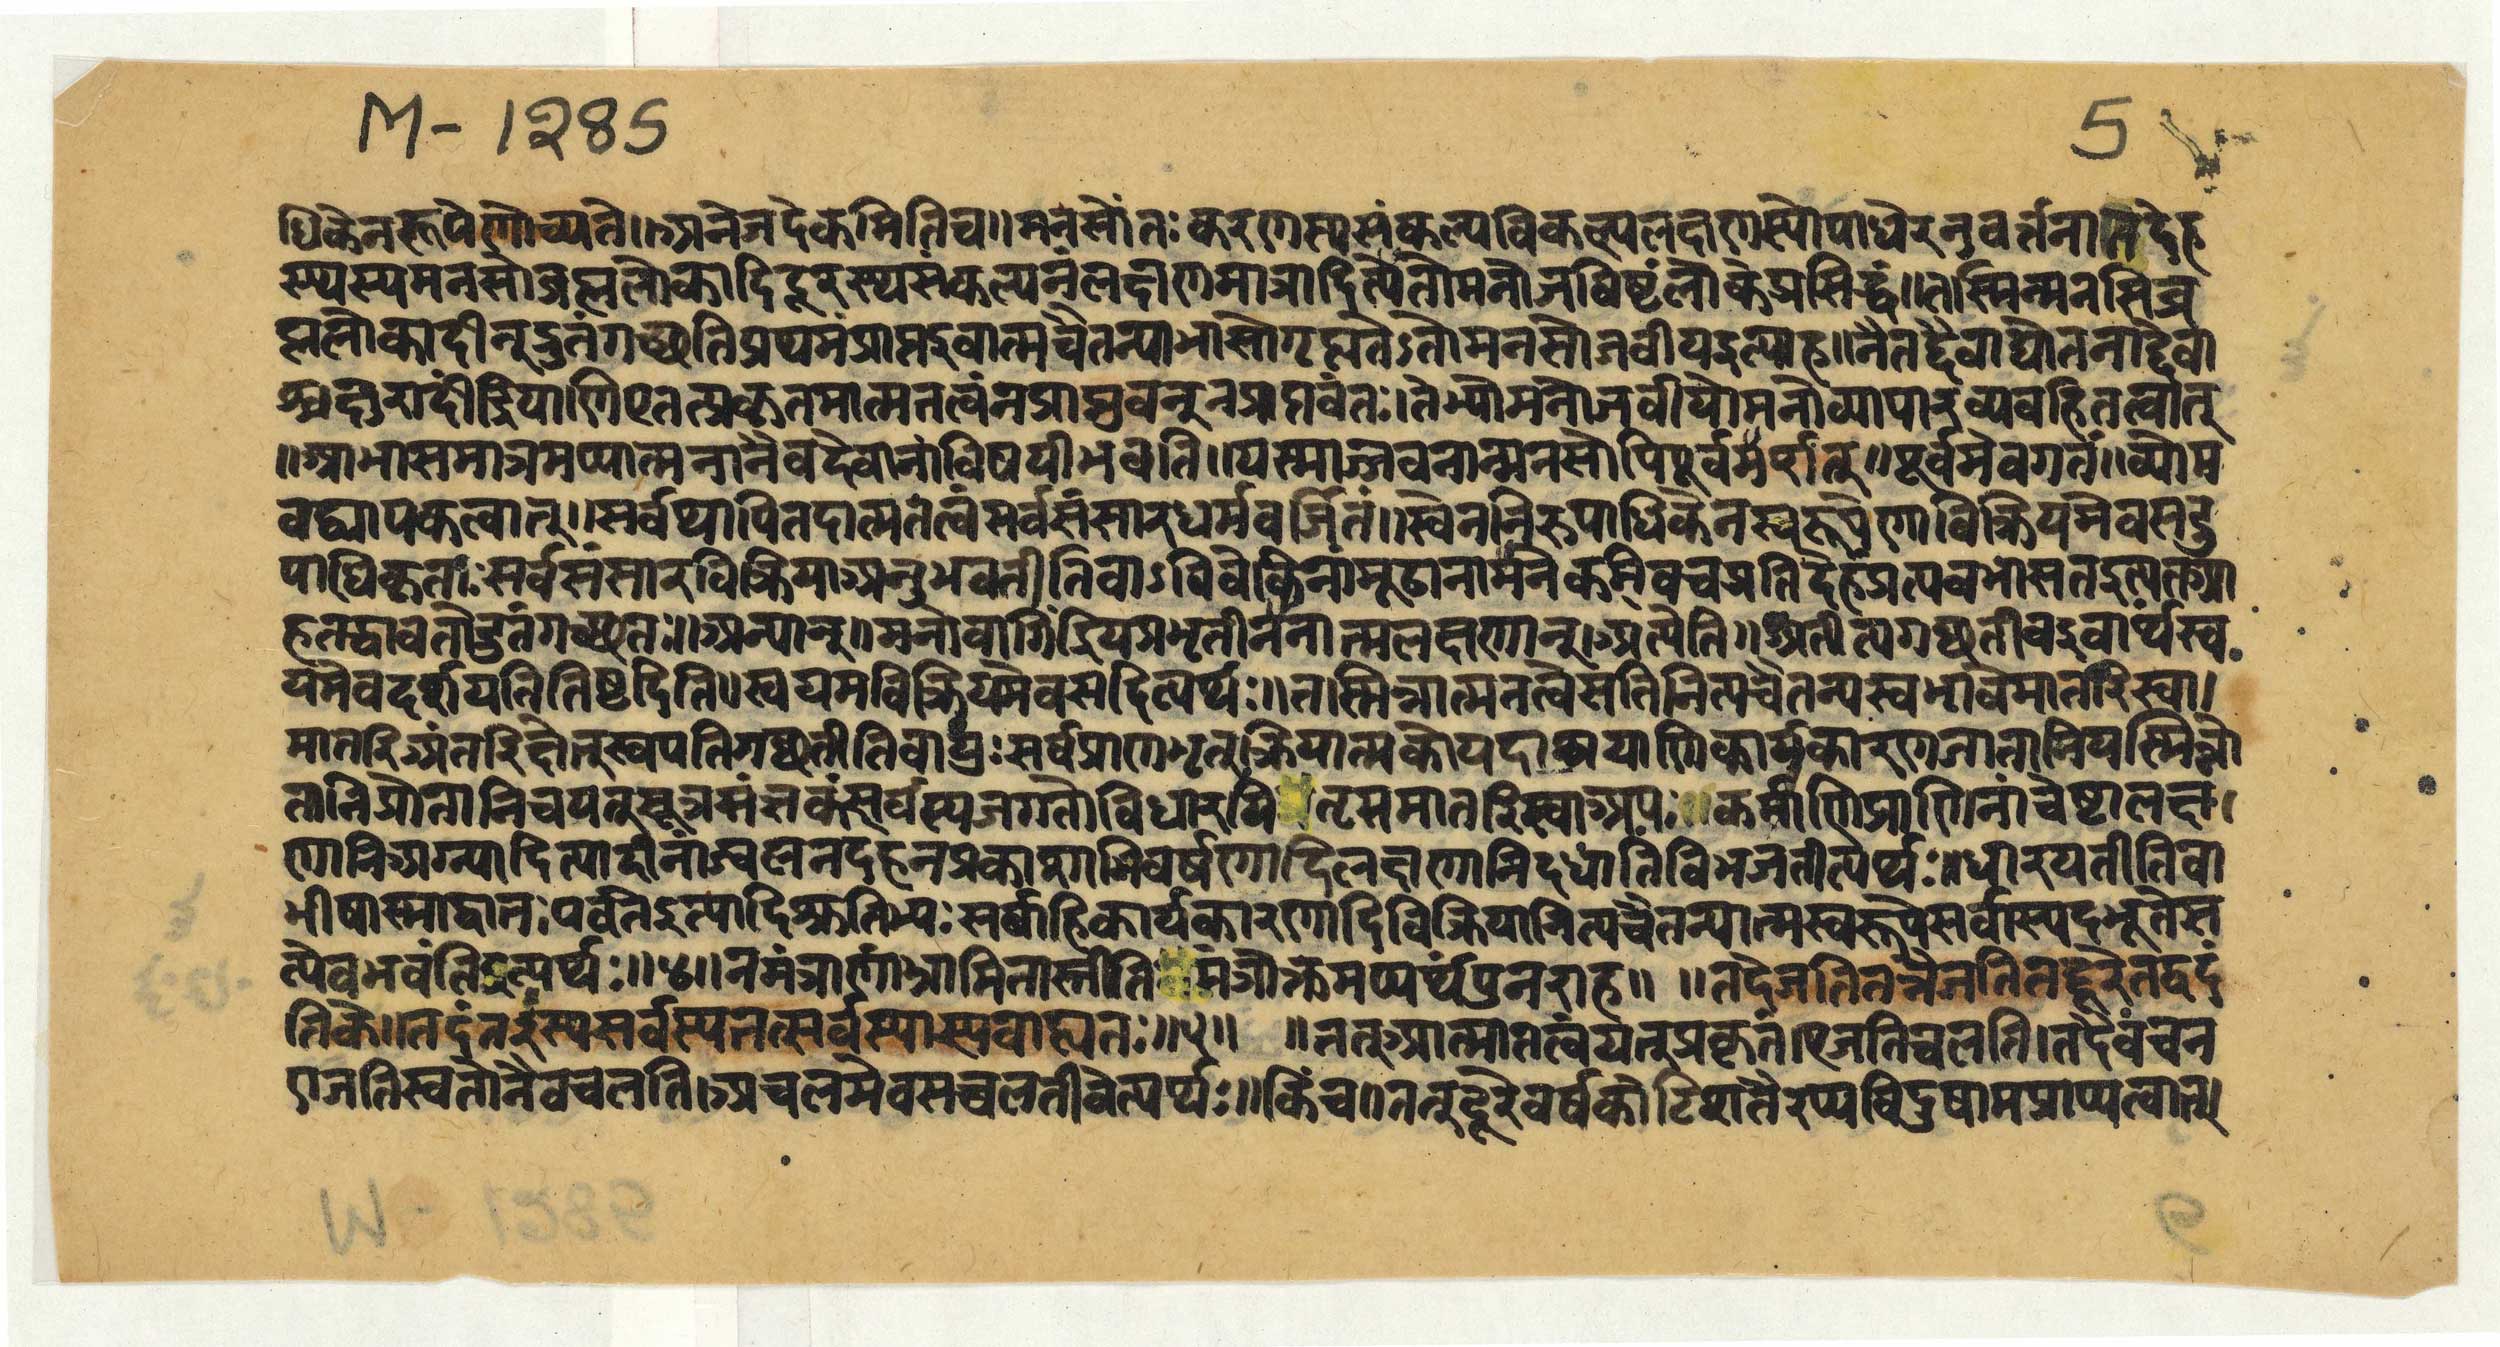 M-1285 5
धिकेनरूपेणोच्यते॥अनेजदेकमितिच॥मनसोंतःकरणस्यसंकल्पविकल्पलक्षणस्योपाधेरनुवर्त्तनात्देह
स्थस्यमनसोब्रह्मलोकादिदूरस्थसंकल्पनंलक्षणमात्रादित्यतोमनोजविष्टंलोकप्रसिद्धं॥तस्मिन्मनसिब्र
ह्मलोकादीन्द्रुतंगच्छतिप्रथमंप्राप्तइवात्मचैतन्याभासोगृह्यतेऽतोमनसोजवीयइत्याह॥नैतद्देवाद्योतनाद्देवा
श्चक्षुरादींद्रियाणिएतत्प्रकृतमात्मतत्वंनप्राप्नुवन्नप्राप्तवंतः।तेभ्योमनोजवीयोमनोव्यापारव्यवहितत्वात्
॥आभासमात्रमप्यात्मनानैवदेवानांविषयीभवति॥यस्माज्जवनान्मनसोपिपूर्वमर्शत्॥पूर्वमेवगतं॥व्योम
वद्व्यापकत्वात्॥सर्वव्यापितदात्मतत्वंसर्वसंसारधर्मवर्जितं॥स्वेननिरुपाधिकेनस्वरूपेणाविक्रियमेवसदु
पाधिकृताःसर्वसंसारविक्रियाअनुभवतीतिवाऽविवेकिनांमूढानामनेकमिवचप्रतिदेहंप्रत्यवभासतइत्यतआ
हतद्धावतोद्रुतंगच्छतः॥अन्यान्॥मनोवागिंद्रियप्रभृतीननात्मलक्षणान्।अत्येति॥अतीत्यगच्छतीवइवार्थंस्व
यमेवदर्शयतितिष्टदिति॥स्वयमविक्रियमेवसदित्यर्थः॥तस्मिन्नात्मतत्वेसतिनित्यचैतन्यस्वभावेमातरिस्वा।
मातरिअंतरिक्षेतुस्वपतिगच्छतीतिवायुःसर्वप्राणभृत्क्रियात्मकोयदाश्रयाणिकार्यकारणजातानियस्मिन्नो
तानिप्रोतानिचयत्सूत्रसंज्ञकंसर्वस्यजगतोविधारयितृसमातरिस्वाअपः॥कर्माणिप्राणिनांचेष्टालक्ष
णानिअग्न्यादित्यादीनांज्वलनदहनप्रकाशाभिवर्षणादिलक्षणानिदधातिविभजतीत्यर्थः॥धारयतीतिवा
भीषास्माद्वातःपवतइत्यादिश्रुतिभ्यःसर्वाहिकार्यकारणादिविक्रियानित्यचैतन्यात्मस्वरूपेसर्वास्पदभूतेस
त्येवभवंतिइत्यर्थः॥४॥नमंत्राणांआमितास्तीतिमंत्रोक्तमप्यर्थंपुनराह॥ ॥तदेजतितन्नैजतितद्दूरेतद्वदं
तिके॥तदंतरस्यसर्वस्यतत्सर्वस्यास्यबाह्यतः॥५॥ ॥तत्आत्मातत्वंयत्प्रकृतं।एजतिचलति।तदेवंचन
एजतिस्वतोनैवचलति।अचलमेवसच्चलतीवेत्यर्थः॥किंच॥तत्दूरेवर्षकोटिशतैरप्यविदुषामप्राप्यत्वात्।